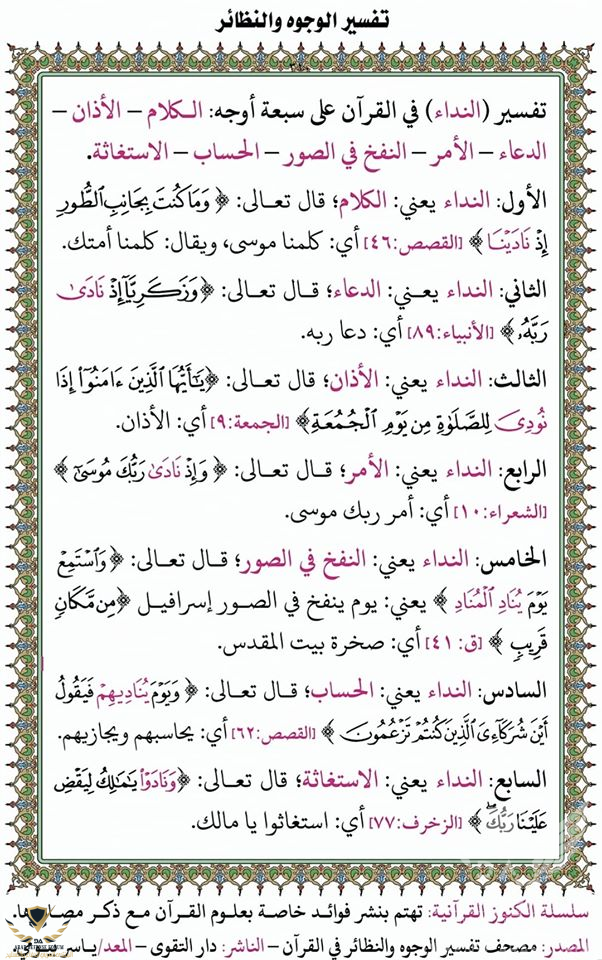 تفسير الوجوه والنظائر
تفسير (النداء) في القرآن على سبعة أوجه: الكلام – الأذان –
الدعاء – الأمر – النفخ في الصور – الحساب – الاستغاثة.
الأول: النداء يعني: الكلام؛ قال تعالى: ﴿ وَمَا كُنتَ بِجَانِبِ ٱلطُّورِ
إِذْ نَادَيْنَا ﴾ [القصص:٤٦] أي: كلمنا موسى، ويقال: كلمنا أمتك.
الثاني: النداء يعني: الدعاء؛ قال تعالى: ﴿وَزَكَرِيَّآ إِذْ نَادَىٰ
رَبَّهُۥ ﴾ [الأنبياء:٨٩] أي: دعا ربه.
الثالث: النداء يعني: الأذان؛ قال تعالى: ﴿يَـٰٓأَيُّهَا ٱلَّذِينَ ءَامَنُوٓا۟ إِذَا
نُودِىَ لِلصَّلَوٰةِ مِن يَوْمِ ٱلْجُمُعَةِ﴾ [الجمعة:٩] أي: الأذان.
الرابع: النداء يعني: الأمر؛ قال تعالى: ﴿ وَإِذْ نَادَىٰ رَبُّكَ مُوسَىٰٓ ﴾
[الشعراء:١٠] أي: أمر ربك موسى.
الخامس: النداء يعني: النفخ في الصور؛ قال تعالى: ﴿ وَٱسْتَمِعْ
يَوْمَ يُنَادِ ٱلْمُنَادِ ﴾ يعني: يوم ينفخ في الصور إسرافيل ﴿مِن مَّكَانٍ
قَرِيبٍ ﴾ [ق: ٤١] أي: صخرة بيت المقدس.
السادس: النداء يعني: الحساب؛ قال تعالى: ﴿ وَيَوْمَ يُنَادِيهِمْ فَيَقُولُ
أَيْنَ شُرَكَآءِىَ ٱلَّذِينَ كُنتُمْ تَزْعُمُونَ ﴾ [القصص:٦٢] أي: يحاسبهم ويجازيهم.
السابع: النداء يعني: الاستغاثة؛ قال تعالى: ﴿وَنَادَوْا۟ يَـٰمَـٰلِكُ لِيَقْضِ
عَلَيْنَا رَبُّكَ ۖ ﴾ [الزخرف:٧٧] أي: استغاثوا يا مالك.
سلسلة الكنوز القرآنية: تهتم بنشر فوائد خاصة بعلوم القرآن مع ذكر
المصدر: مصحف تفسير الوجوه والنظائر في القرآن – الناشر: دار التقوى – المعد/